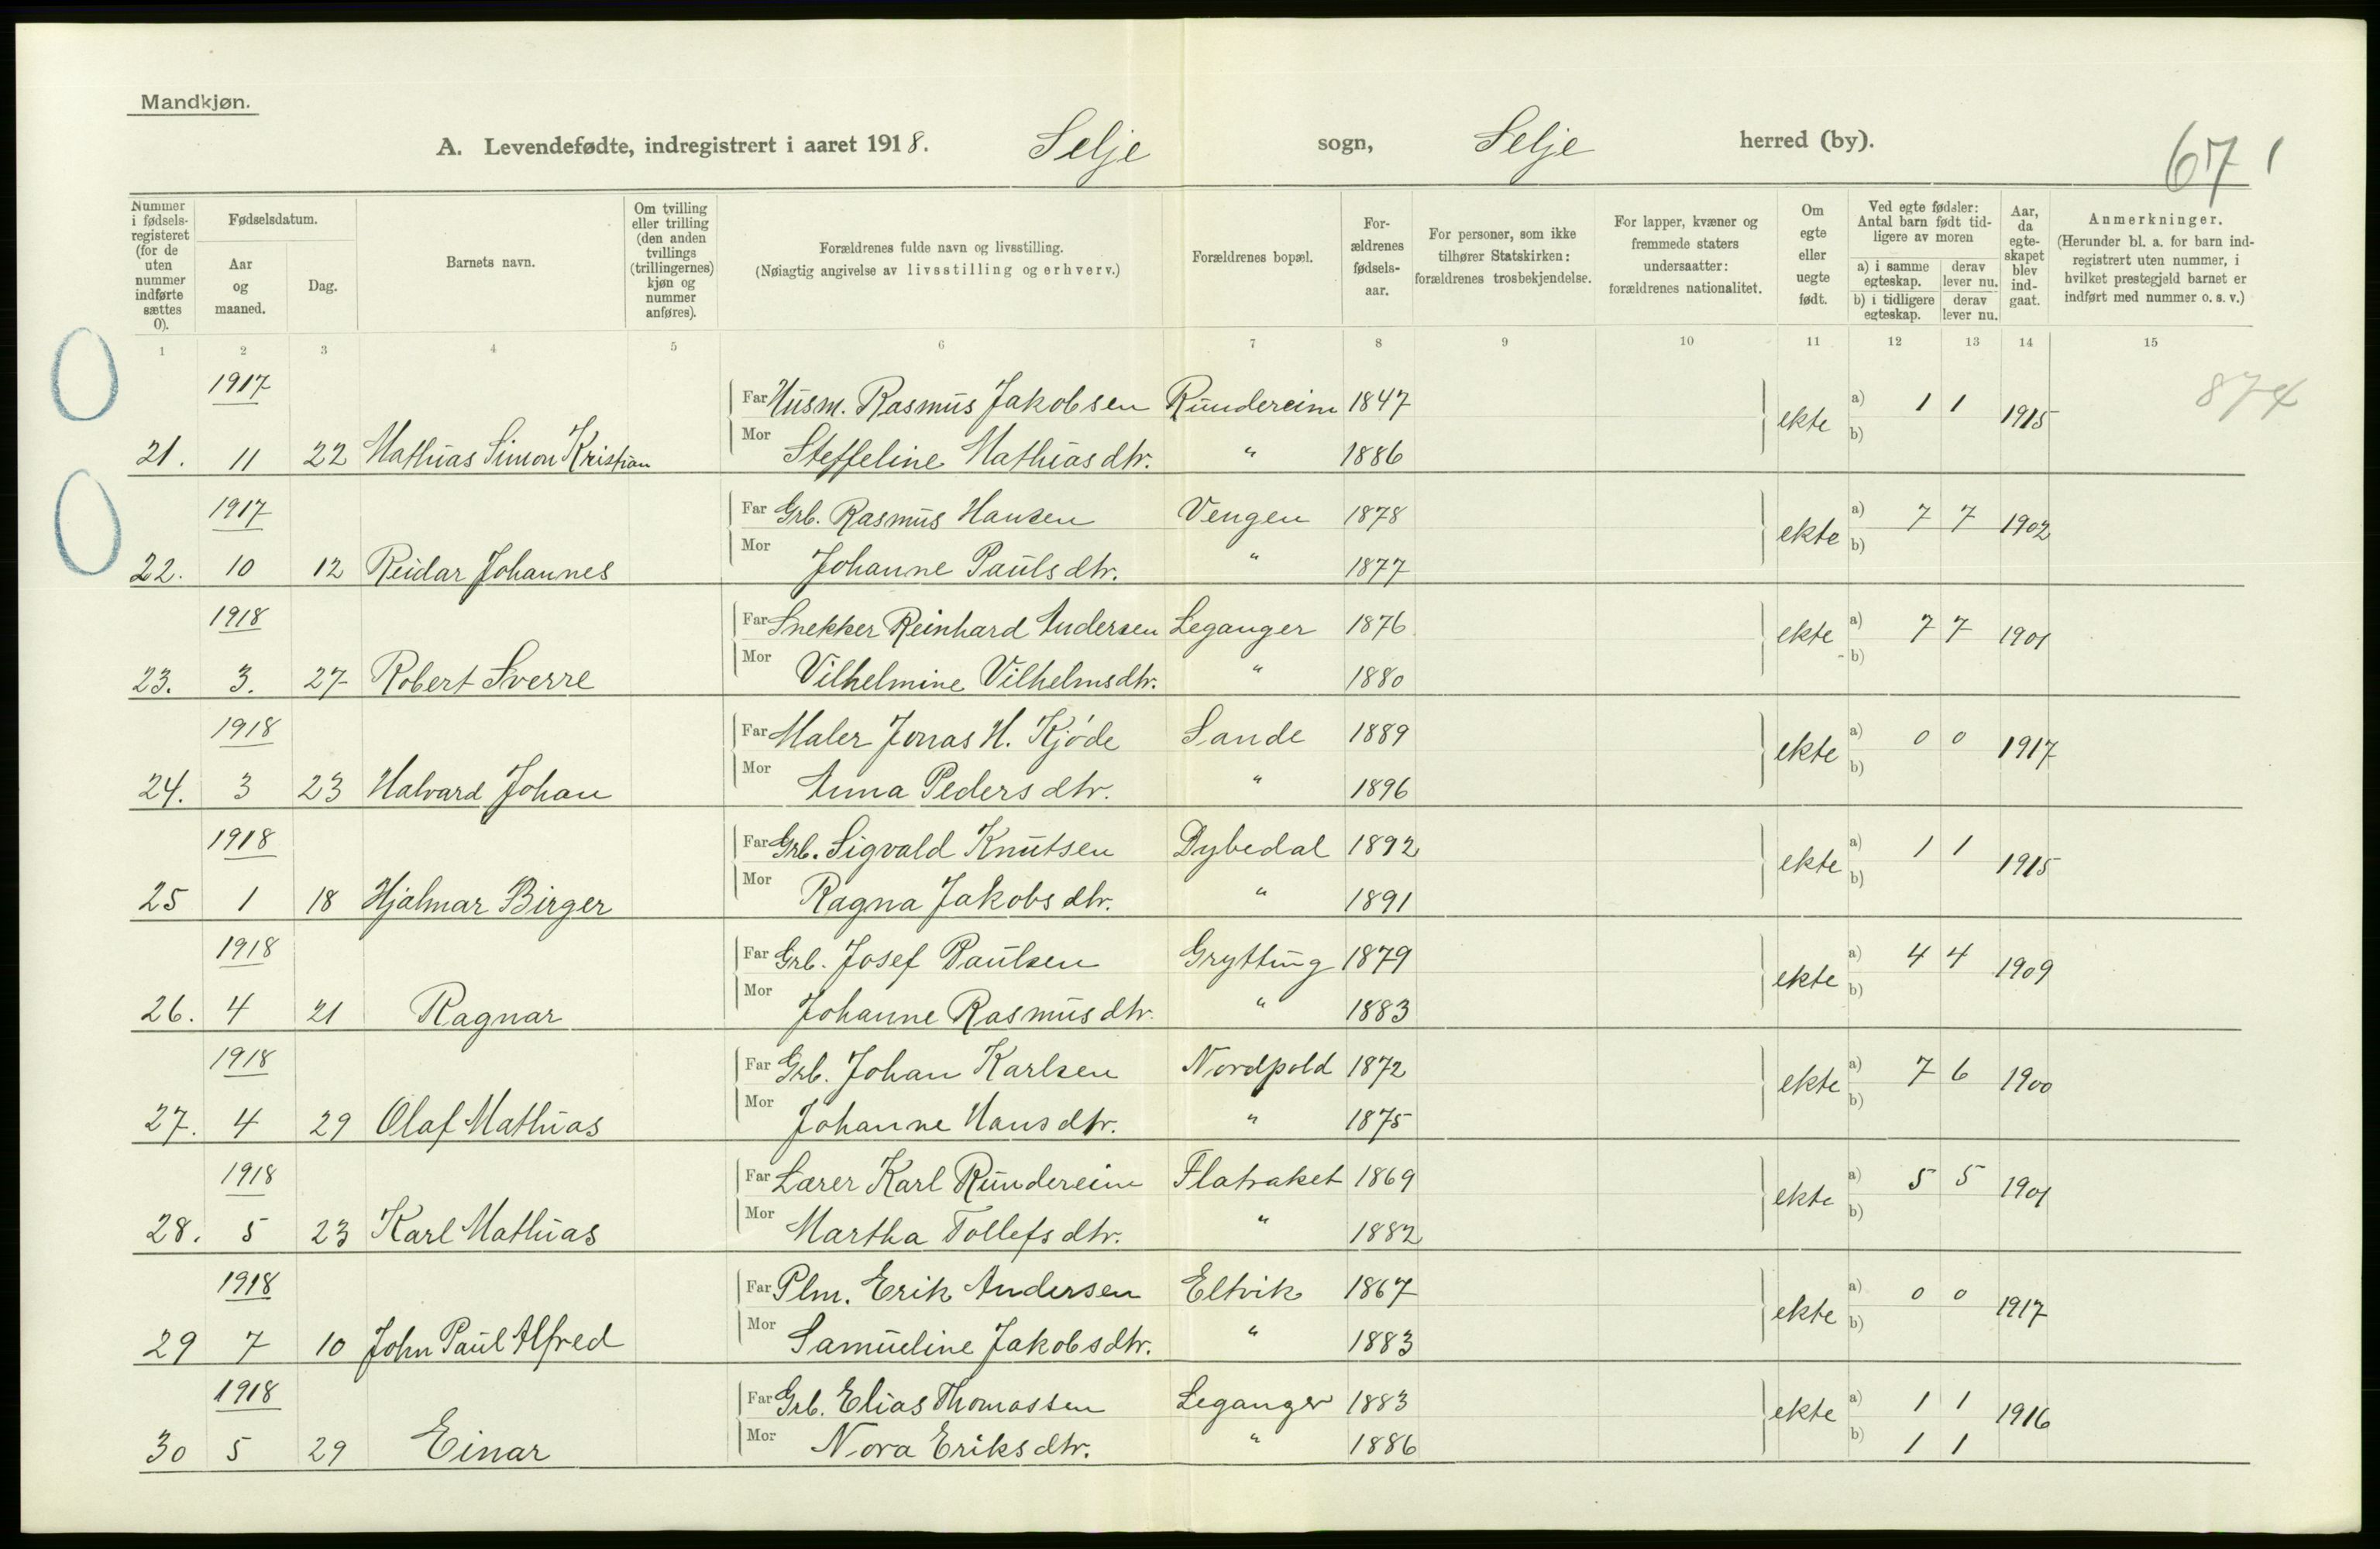 Mandkjøn.
A. Levendefødte, indregistrert i aaret 1918. Selje sogn, Selje herred (by).
671
Nummer i fødsels-registeret (for de uten nummer indførte sættes 0).
Fødselsdatum.
Aar og maaned.
Dag.
Barnets navn.
Om tvilling eller trilling (den anden tvillings (trillingernes) kjøn og nummer anføres).
Forældrenes fulde navn og livsstilling.
(Nøiagtig angivelse av livsstilling og erhverv.)
Forældrenes bopæl.
For-ældrenes fødsels-aar.
For personer, som ikke tilhører Statskirken: forældrenes trosbekjendelse.
For lapper, kvæner og fremmede staters undersaatter: forældrenes nationalitet.
Om egte eller uegte født.
Ved egte fødsler: Antal barn født tid-ligere av moren
a) i samme egteskap.
derav lever nu.
b) i tidligere egteskap.
derav lever nu.
Aar, da egte-skapet blev ind-gaat.
Anmerkninger.
(Herunder bl. a. for barn ind-registrert uten nummer, i hvilket prestegjeld barnet er indført med nummer o. s. v.)
1 2 3 4 5 6 7 8 9 10 11 12 13 14 15
1917 Far Husm. Rasmus Jakobsen Rundereim 1847 ekte a) 1 1 1915 874
21. 11 22 Mathias Simon Kristian Mor Steffeline Mathiasdtr. " 1886 b)
1917 Far Grb. Rasmus Hansen Vengen 1878 ekte a) 7 7 1902
22. 10 12 Reidar Johannes Mor Johanne Paulsdtr. " 1877 b)
1918 Far Snekker Reinhard Andersen Leganger 1876 ekte a) 7 7 1901
23. 3. 27 Robert Sverre Mor Vilhelmine Vilhelmsdtr. " 1880 b)
1918 Far Maler Jonas H. Kjøde Sande 1889 ekte a) 0 0 1917
24. 3 23 Halvard Johan Mor Anna Pedersdtr. " 1896 b)
1918 Far Grb. Sigvald Knutsen Dybedal 1892 ekte a) 1 1 1915
25 1 18 Hjalmar Birger Mor Ragna Jakobsdtr. " 1891 b)
1918 Far Grb. Josef Paulsen Grytting 1879 ekte a) 4 4 1909
26. 4 21 Ragnar Mor Johanne Rasmusdtr. " 1883 b)
1918 Far Grb. Johan Karlsen Nordpold 1872 ekte a) 7 6 1900
27. 4 29 Olaf Mathias Mor Johanne Hansdtr. " 1875 b)
1918 Far Lærer Karl Rundereim Flatraket 1869 ekte a) 5 5 1901
28. 5 23 Karl Mathias Mor Martha Tollefsdtr. " 1882 b)
1918 Far Plm. Erik Andersen Eltvik 1867 ekte a) 0 0 1917
29 7 10 John Paul Alfred Mor Samueline Jakobsdtr. " 1883 b)
1918 Far Grb. Elias Thomassen Leganger 1883 ekte a) 1 1 1916
30 5 29 Einar Mor Nora Eriksdtr. " 1886 b) 1 1